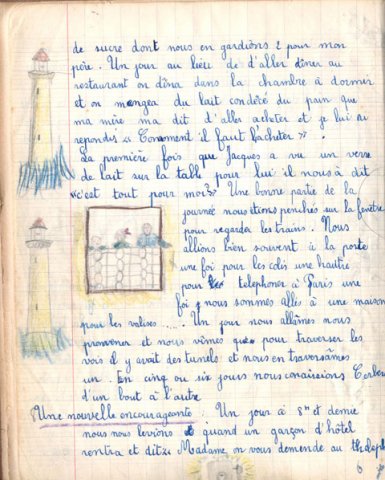 de sucre dont nous en gardions 2 pour mon
père. Un jour au lieu de d'aller dîner au
restaurant on dîna dans la chambre à dormir
et on mangea du lait condéré du pain que
ma mère ma dit d'aller acheter et je lui ai
repondit « Comment il faut l'acheter » .
La première fois que Jacques a vu un verre
de lait sur la table pour lui il nous à dit
« c'est tout pour moi? » Une bonne partie de la
journée nous étions penchés sur la fenêtre
pour regarder les trains. Nous
allions bien souvent à la porte
une foi pour les colis une hautre
pour telephoner à Paris une
foi nous sommes allés à une maison
pour les valises ..... Un jour nous allâmes nous
promener et nous vîmes que pour traverser les
vois il y avait des tunels et nous en traversames
un. En cinq ou six jours nous conaissions Cerbère
d'un bout à l'autre.
Une nouvelle encourageante : Un jour à 8h et demie
nous nous levions quand un garçon d'hôtel
rentra et dit « Madame on vous demande au
6